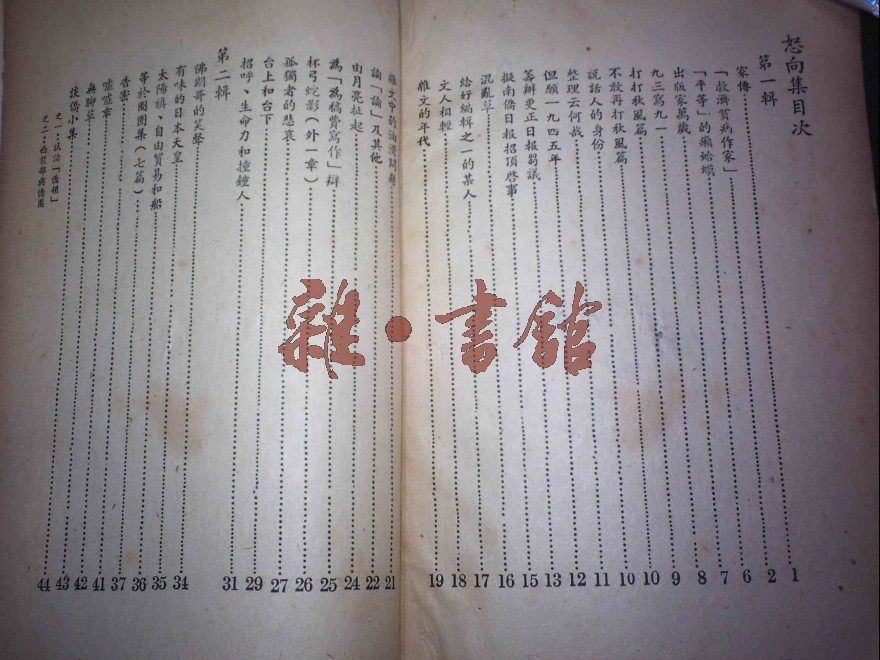 怒向集目次
第一輯
家傳 1
「救濟貧病作家」 2
「平等」的癩蛤蟆 6
出版家萬歲 7
九三寫九一 8
打打秋風篇 9
不敢再打秋風篇 10
說話人的身份 10
整理云何哉 11
但願一九四五年 12
籌辦更正日報芻議 13
擬南僑日報招頂啓事 15
混亂草 16
給好編輯之一的某人 17
文人相輕 18
雜文的年代 19
雜文中的油滑問題 21
論「論」及其他 22
由月亮扯起 24
為「為稿費寫作」辯 25
杯弓蛇影（外一章） 26
孤獨者的悲哀 27
台上和台下 29
招呼、生命力和撞鐘人 31
第二輯
佛朗哥的笑聲 34
有味的日本天皇 35
太陽旗、自由貿易和船 36
等於圈圈集（七篇） 37
告密 41
噓噓章 42
無聊草 43
談僑小集 44
之一：試論「僑領」
之二：西裝部與僑團
雜·書館